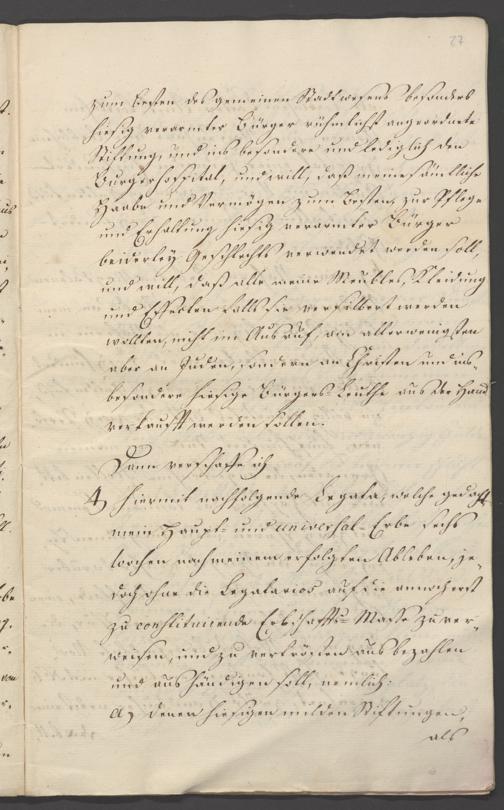 27
zum besten des gemeinen Stadtwesens besonders
hiesig verarmter Bürger rühmlichst angeordnete
Stiftung, und ins besondere und lediglich den
Burgerhospital, und will, daß meine sämtliche
Haabe und Vermögen zum Besten, zur Pflege
und Erhaltung hiesig verarmter Bürger
beiderley Geschlechts verwendet werden soll,
und will, daß alle meine Meubles, Kleidung
und Effecten falls sie versilbert werden
wollten, nicht im Ausruf, am allerwenigsten
aber an Juden, sondern an Christen und ins-
besondere hiesige Bürgers-Leuthe aus der Hand
verkaufft werden sollen.
Dann verschaffe ich
4) hiermit nachfolgende Legata, welche gedacht
mein Haupt- und universal-Erbe sechs
wochen nach meinem erfolgten Ableben, je-
doch ohne die Legatarios auf die annoch erst
zu constituirende Erbschaffts-Masse zu ver-
weisen, und zu vertrösten ausbezahlen
und aushändigen soll, nemlich:
a) denen hiesigen milden Stiftungen,
als